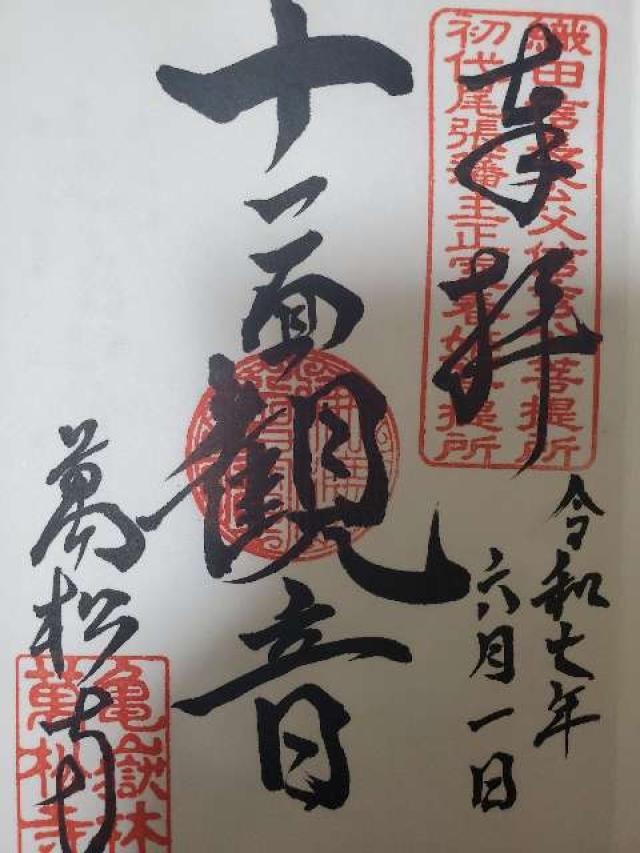 奉拝
織田信長公父信秀公菩提所
初代尾張藩主正室春姫菩提所
令和七年
六月一日
十一面観音
萬松寺
亀嶽林
萬松寺